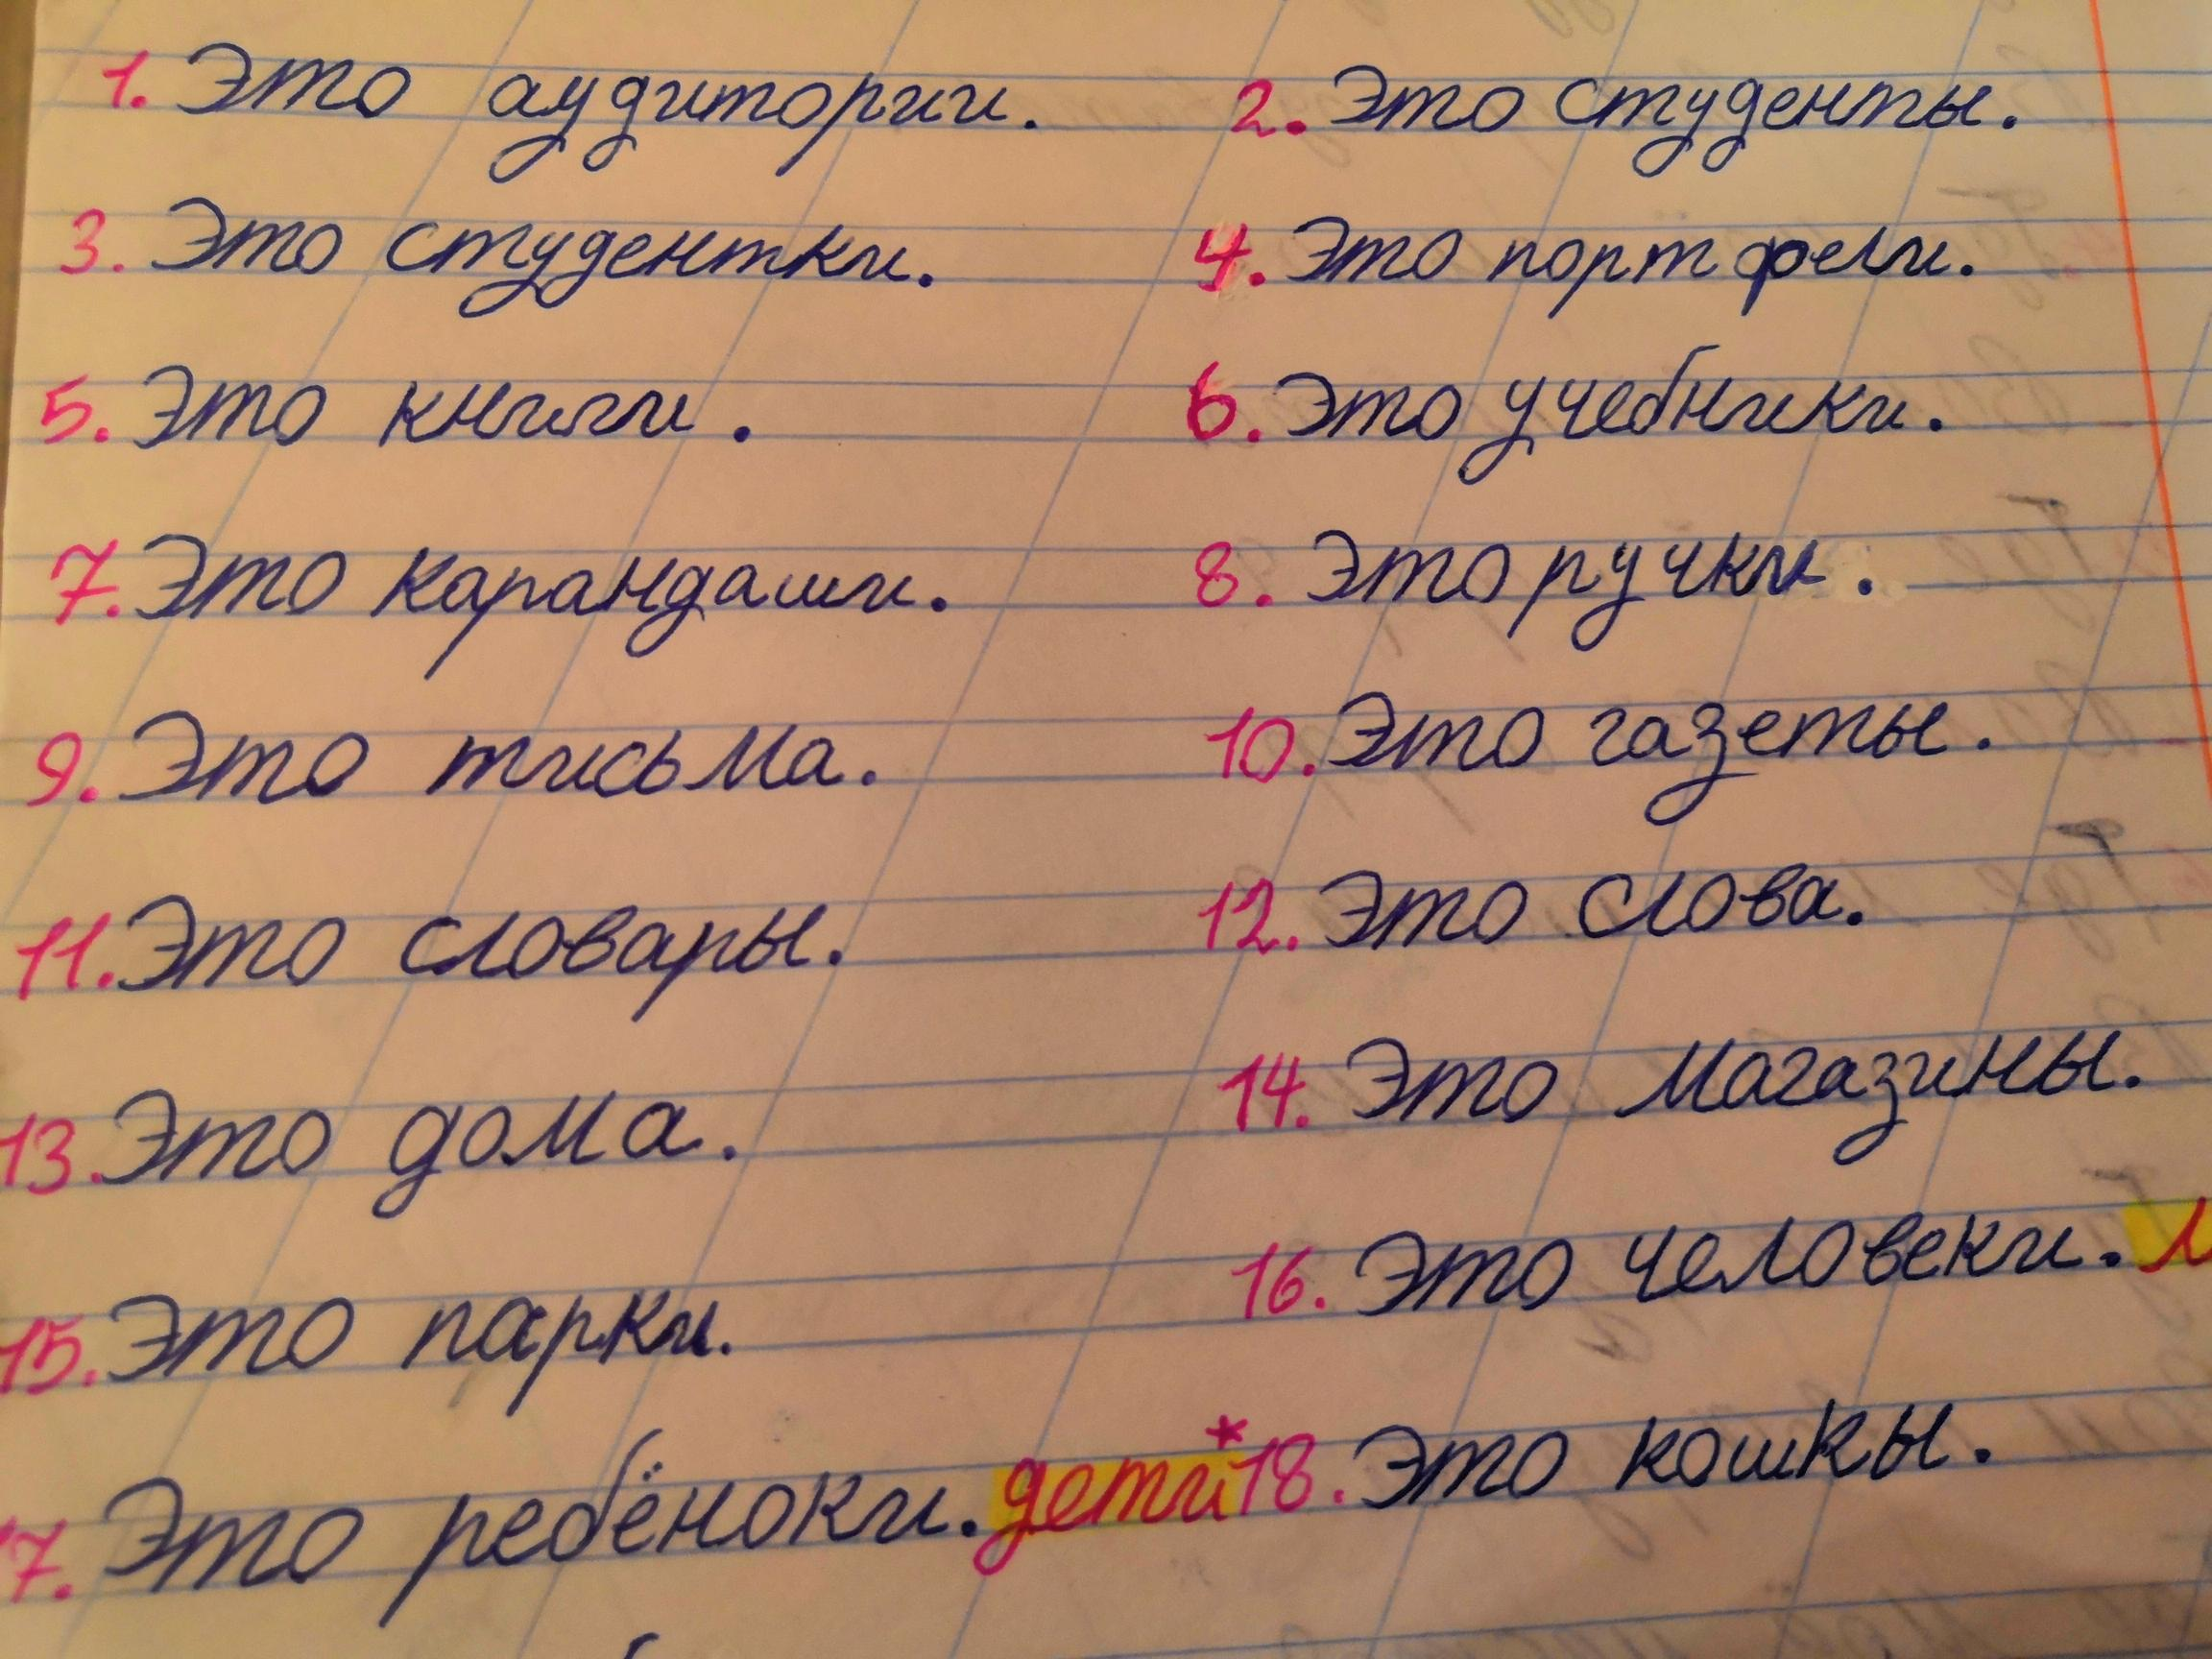 1. Это аудитории. 2. Это студенты.
3. Это студентки. 4. Это портфели.
5. Это книги. 6. Это учебники.
7. Это карандаши. 8. Это ручки.
9. Это письма. 10. Это газеты.
11. Это словары. 12. Это слова.
13. Это дома. 14. Это магазины.
15. Это парки. 16. Это человеки.
17. Это ребёноки. дети* 18. Это кошкы.